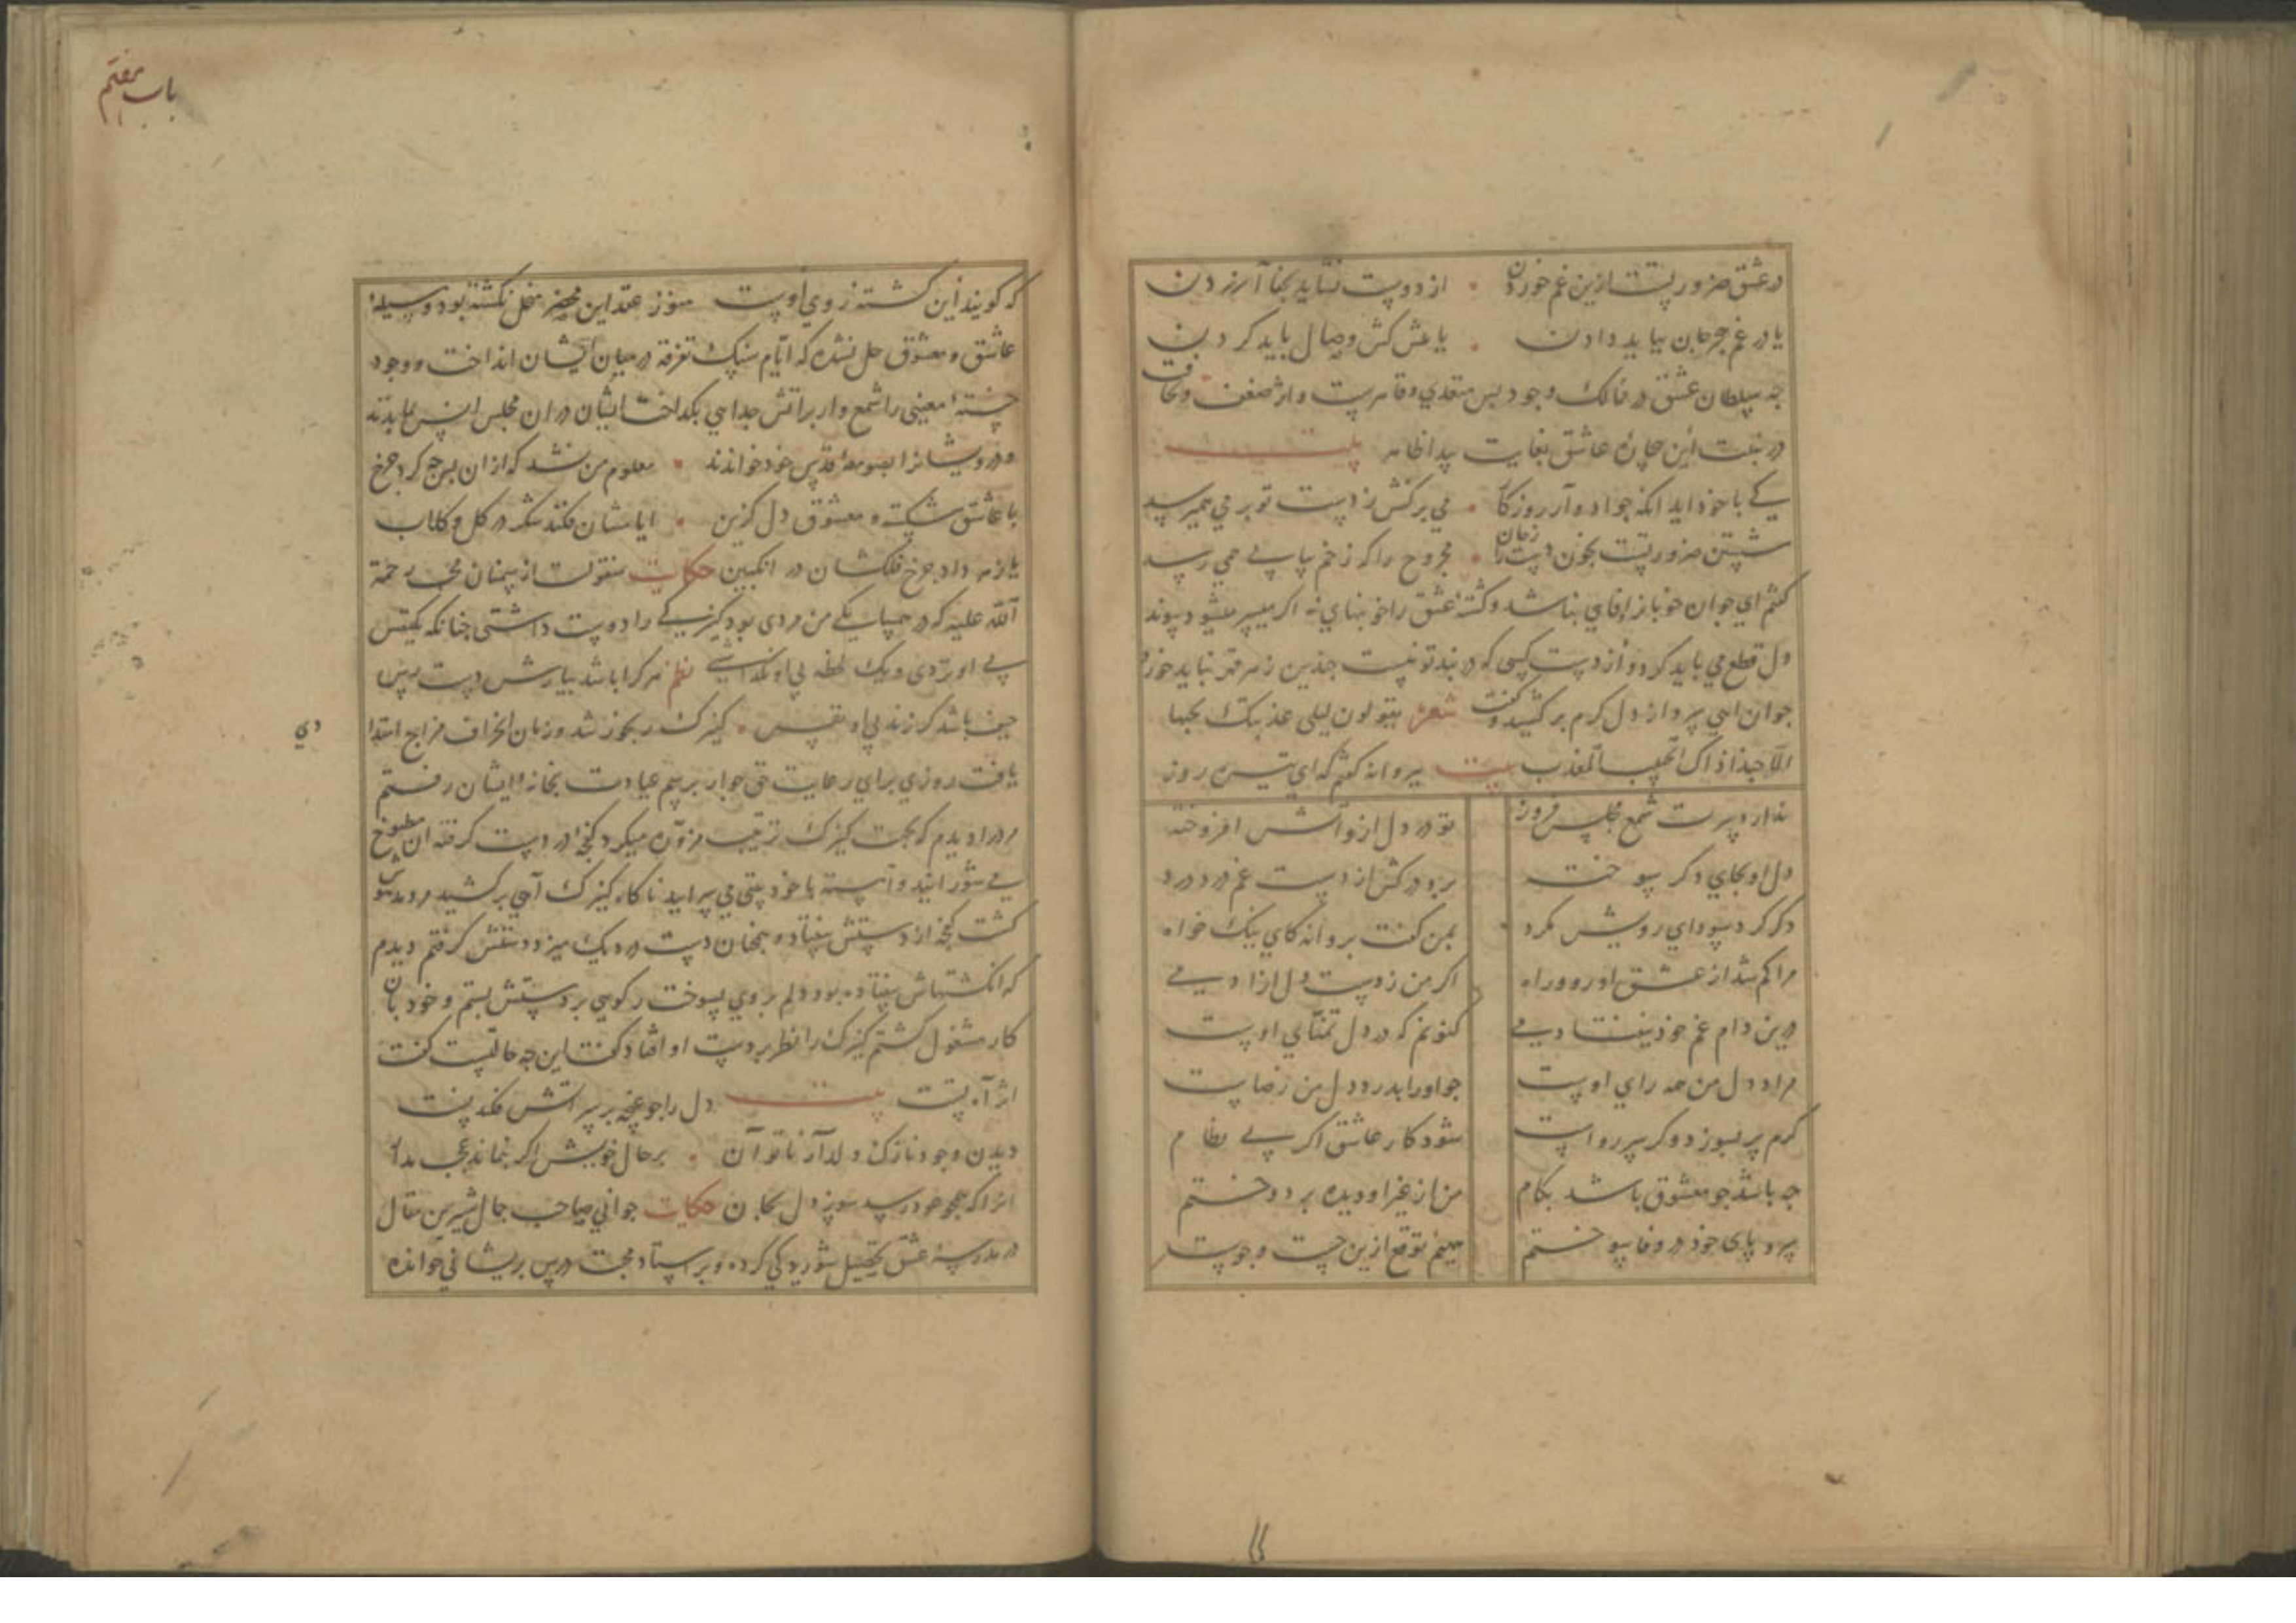 در عشق ضرورتست ازین غم خوردن • از دوست نشاید بجفا آزردن
یا در غم هجر جان بباید دادن • یا عش کش وصال باید کردن
چه سلطان عشق در ممالک وجود بس متعدی و قاهرست و اثر ضعف و نحافت
در نبت این عاشق بغایت پیدا ظاهر بیت
یکی با خود اید انکه جو اد و آر روزکار • می برکش ز دست تو بر می سد
شستن ضرورتست بخون دست زمان را • مجروح را که زخم پیاپی همی رسد
کفتم ای جوان خوبانرا وفای نباشد و کشته عشق را خونبهای نه اکر میسر میشود پیوند
دل قطع می باید کرد و از دست کسی که در بند تو نیست چندین زهر قهر نباید خورد
جوان اهی سرد از دل کرم برکشید و کفت شعر یقولون لیلی عذبتک بحبها
الا حبذا ذاک الحبیب المعذب بیت پروانه کفتم که ای تیره روز
ندارد سرت شمع مجلس فروز تو در دل ازو اتش افروخته
دل او بجای دکر سوخته برو درکش از دست غم درد درد
دکر کرد سودای رویش مکرد بمن کفت پروانه کای نیک خواه
مرا کم شد از عشق او رو و راه اکر من ز دست دل ازادمی
درین دام غم خود نیفتادمی کنونم که در دل تمنای اوست
مراد دل من همه رای اوست جو او را بدرد دل من رضاست
کرم پر بسوزد و کر سر رواست شود کار عاشق اکر بی نظام
چه باشد جو معشوق باشد بکام من از غیر او دیده بردوختم
سر و پای خود در وفا سوختم همینم توقع ازین جست و جوست
باب هفتم
که کویند این کشته ز روی اوست هنوز عقد این محضر منحل نکشته بود و وسیله
عاشق و معشوق حل نشده که ایام سنک تفرقه در میان ایشان انداخت و وجود
خسته معینی را شمع وار بر اتش جدایی بکداخت ایشان در ان مجلس انس بماندند
و درویشانرا بصومعه قدس خود خواندند • معلوم من نشد که از ان پس چه کرد چرخ
با عاشق شکسته و معشوق دل کزین • ایا نشان فکند شکر در کل و کلاب
یا زهر داد چرخ فلکشان در انکبین حکایت منقولست از سمنان محب رحمة
الله علیه که در همسایکی من مردی بود کنیزکی را دوست داشتی چنانکه یکنفس
بی او نزدی و یک لحظه بی او نکذاشتی نظم هر کرا باشد بیارش دست رس
حیف باشد کر زند بی او نفس • کنیزک رنجور شد و زمان انحراف مزاج امتدا
دی
یافت روزی برای رعایت حق جوار برسم عیادت بخانه ایشان رفتم
مرد را دیدم که بجهت کنیزک ترتیب مزوره میکرد کفچه در دست کرفته ان مطبوخ
می شورانید و آهسته با خود بیتی می سرایید ناکاه کنیزک آهی برکشید مرد مدهوش
کشت کفچه از دستش بیفتاد و همچنان دست در دیک میزد دستش کرفتم دیدم
که انکشتهاش بیفتاده بود دلم بر وی بسوخت رکویی بر دستش بستم و خود بان
کار مشغول کشتم کنیزک را نظر بر دست او افتاد کفت این چه حالتست کفت
اثر آه تست بیت دل را جو غنچه بر سر اتش فکند نیست
دیدن وجود نازک دلدار ناتوان • بر حال خویش اکر بماند عجب مدار
انرا که هجر خود رسد سوز دل بجان حکایت جوانی صاحب جمال شیرین مقال
در مدرسه عشق تحصیل شوریدکی کرده و بر استاد محبت درس پریشانی خوانده